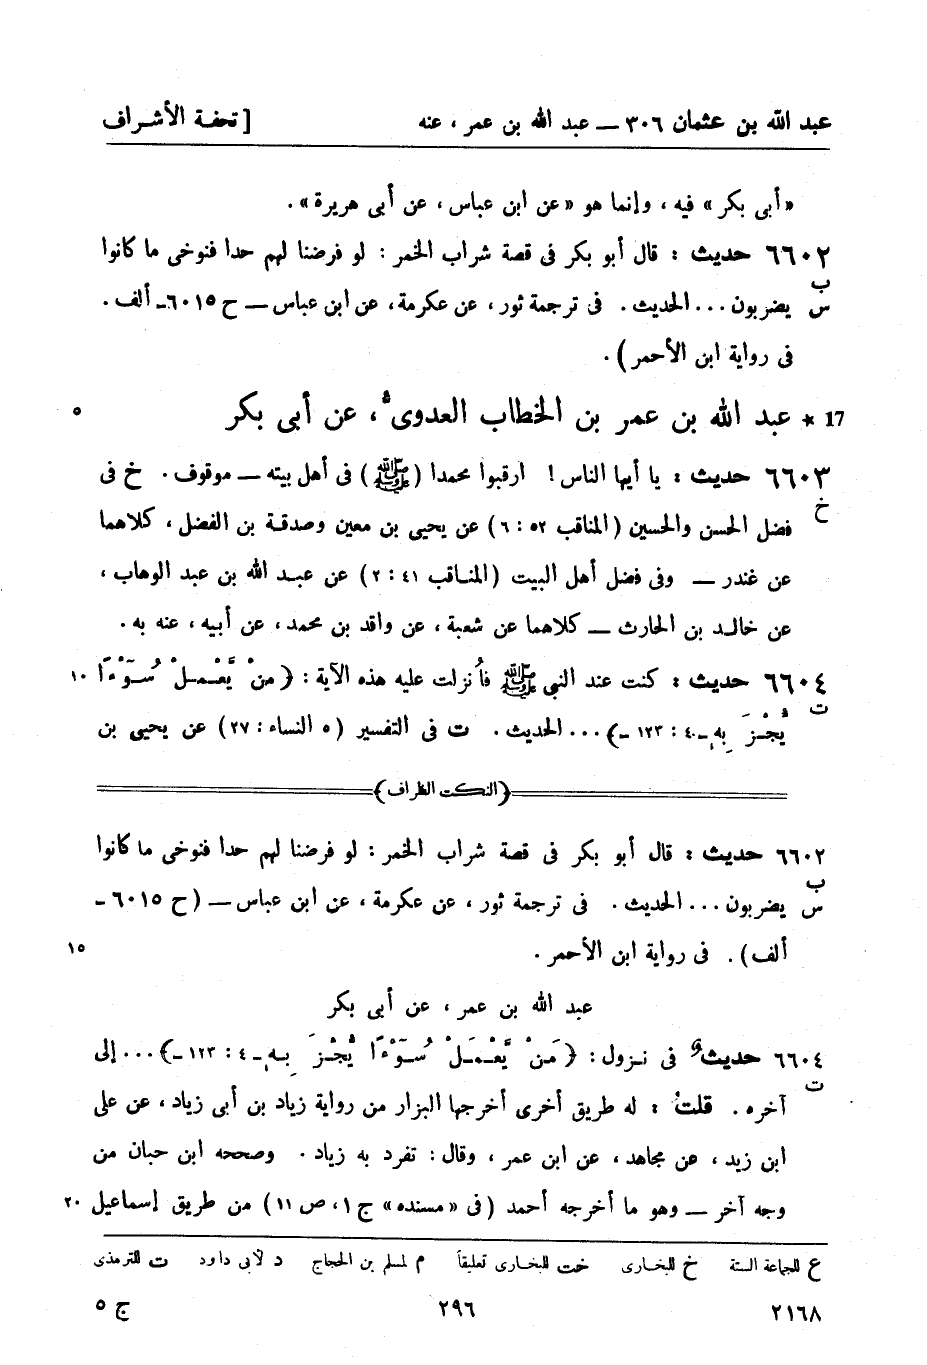 عبد الله بن عثمان ٣٠٦ — عبد الله بن عمر ، عنه [ تحفة الأشراف
«أبى بكر» فيه ، وإنما هو «عن ابن عباس ، عن أبى هريرة» .
٦٦٠٢ حديث : قال أبو بكر فى قصة شراب الخمر : لو فرضنا لهم حدا فنوخى ما كانوا
ب
س يضربون ... الحديث . فى ترجمة ثور ، عن عكرمة ، عن ابن عباس — ح ٦٠١٥ـ ألف .
فى رواية ابن الأحمر) .
17 * عبد الله بن عمر بن الخطاب العدوى ، عن أبى بكر ٥
٦٦٠٣ حديث : يا أيها الناس ! ارقبوا محمدا (ﷺ) فى أهل بيته — موقوف . خ فى
خ فضل الحسن والحسين (المناقب ٥٢ : ٦) عن يحيى بن معين وصدقة بن الفضل ، كلاهما
عن غندر — وفى فضل أهل البيت (المناقب ٤١ : ٢) عن عبد الله بن عبد الوهاب ،
عن خالد بن الحارث — كلاهما عن شعبة ، عن واقد بن محمد ، عن أبيه ، عنه به .
٦٦٠٤ حديث : كنت عند النبى ﷺ فأُنزلت عليه هذه الآية : ﴿ مَنْ يَّعْمَلْ سُوْٓءًا ١٠
ت يُّجْزَ بِهٖ ـ ٤ : ١٢٣ ـ﴾ ... الحديث . ت فى التفسير (٥ النساء : ٢٧) عن يحيى بن
﴿النكت الظراف﴾
٦٦٠٢ حديث : قال أبو بكر فى قصة شراب الخمر : لو فرضنا لهم حدا فنوخى ما كانوا
ب
س يضربون ... الحديث . فى ترجمة ثور ، عن عكرمة ، عن ابن عباس — (ح ٦٠١٥ ـ
ألف) . فى رواية ابن الأحمر . ١٥
عبد الله بن عمر ، عن أبى بكر
٦٦٠٤ حديث فى نزول : ﴿ مَنْ يَّعْمَلْ سُوْٓءًا يُّجْزَ بِهٖ ـ ٤ : ١٢٣ ـ﴾ ... إلى
ت آخره . قلتُ : له طريق أخرى أخرجها البزار من رواية زياد بن أبى زياد ، عن على
ابن زيد ، عن مجاهد ، عن ابن عمر ، وقال : تفرد به زياد . وصححه ابن حبان من
وجه آخر — وهو ما أخرجه أحمد (فى «مسنده» ج ١ ، ص ١١) من طريق إسماعيل ٢٠
ع للجماعة الستة خ للبخارى خت للبخارى تعليقاً م لمسلم بن الحجاج د لأبى داود ت للترمذى
٢١٦٨ ٢٩٦ ج ٥